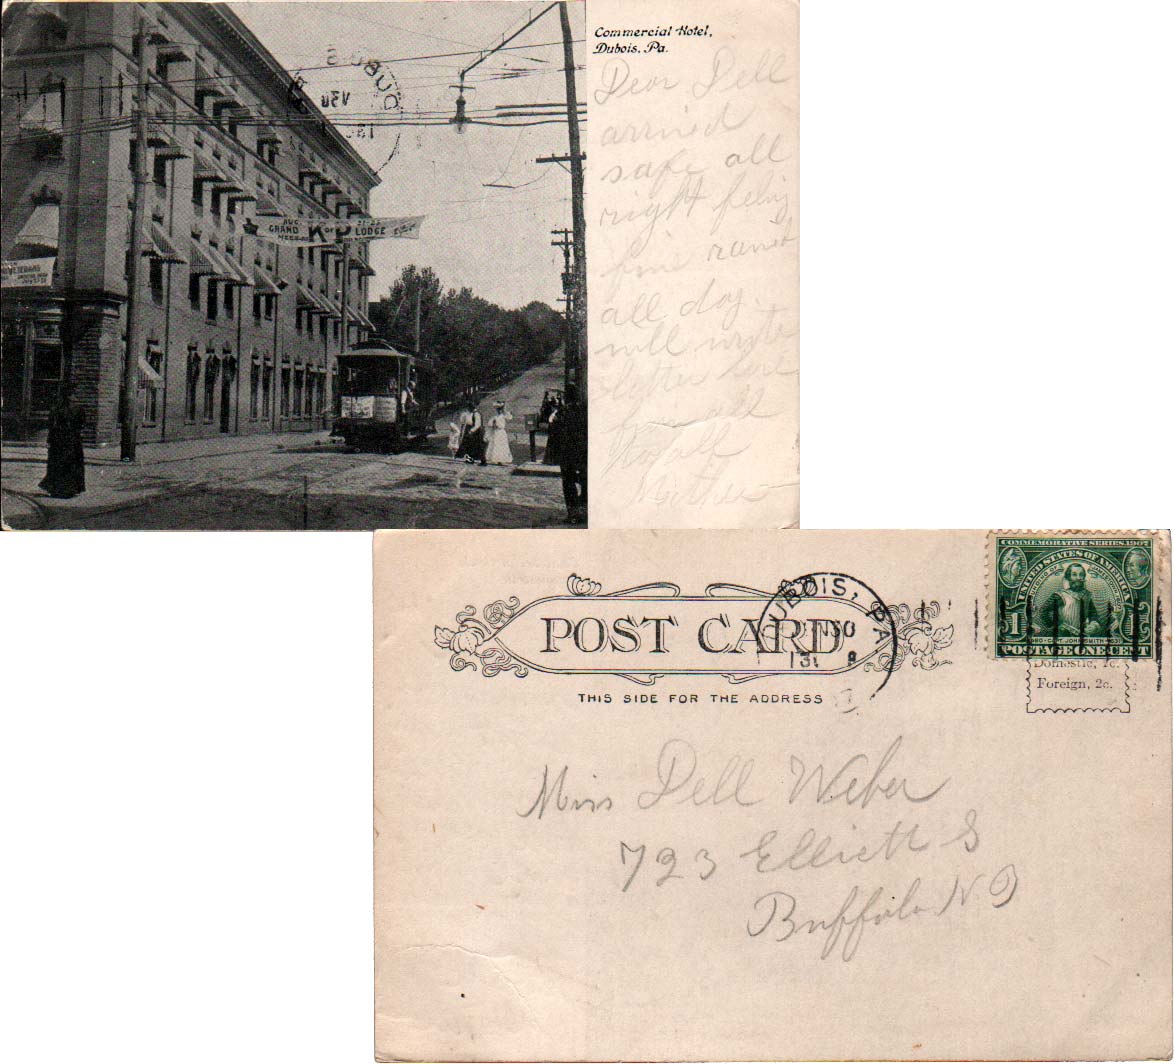 Commercial Hotel,
Dubois, Pa.
Dear Dell
arrived
safe all
right feling
fine
all day
will write
letter
from all
to all
Mother
AUG. 21-22
GRAND K OF P LODGE
DUBOIS
POST CARD
THIS SIDE FOR THE ADDRESS
DUBOIS, PA
COMMEMORATIVE SERIES, 1907
UNITED STATES OF AMERICA
1580 - CAPT. JOHN SMITH - 1631
1
POSTAGE ONE CENT
Domestic, 1c.
Foreign, 2c.
Miss Dell Weber
723 Elliott S
Buffalo N